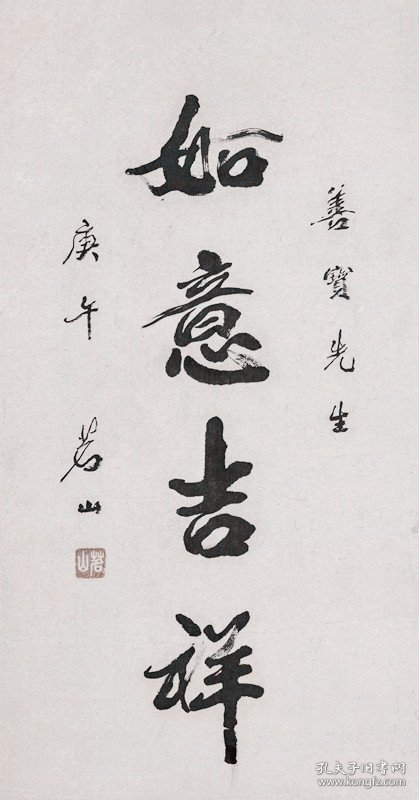 善寶先生
如意吉祥
庚午 茗山
茗山
孔夫子旧书网
www.kongfz.com